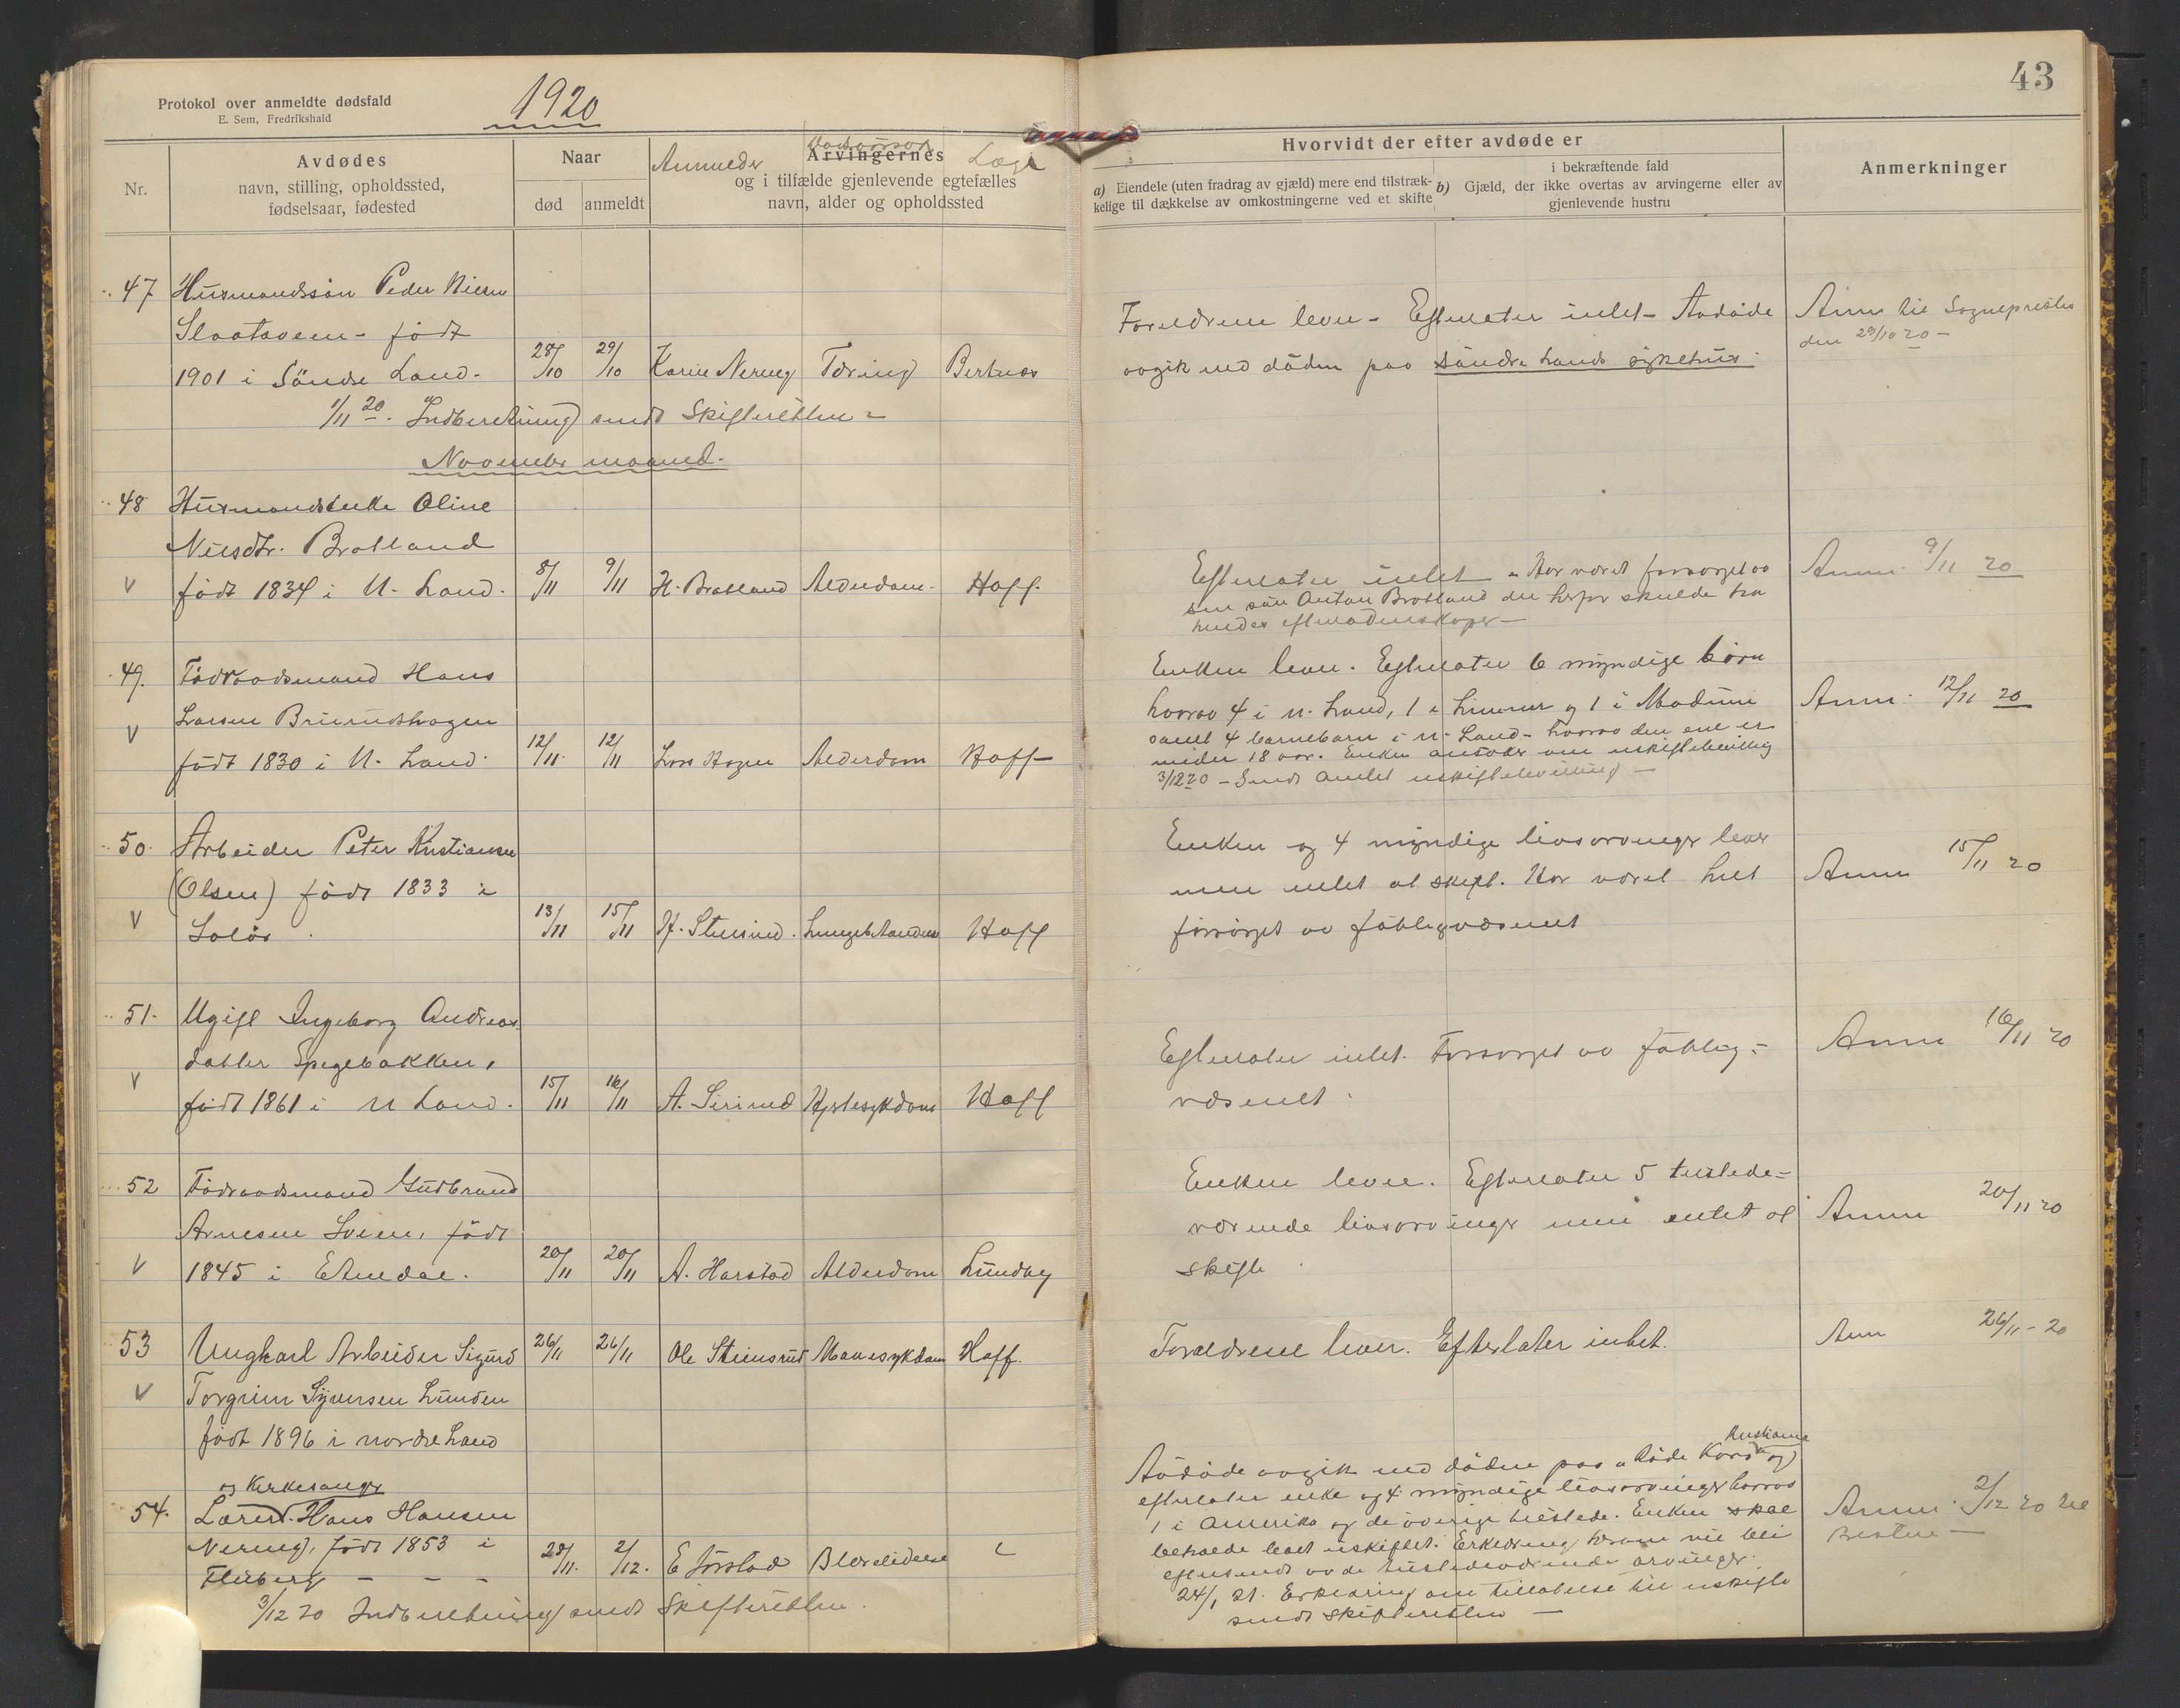 43
Protokol over anmeldte dødsfald
E. Sem, Fredrikshald
1920
Nr.
Avdødes
navn, stilling, opholdssted,
fødselsaar, fødested
Naar
død
anmeldt
Anmelder Dødsaarsak Læge
Arvingernes
og i tilfælde gjenlevende egtefælles
navn, alder og opholdssted
Hvorvidt der efter avdøde er
a) Eiendele (uten fradrag av gjæld) mere end tilstræk-
kelige til dækkelse av omkostningerne ved et skifte
i bekræftende fald
b) Gjæld, der ikke overtas av arvingerne eller av
gjenlevende hustru
Anmerkninger
47 Husmandssøn Peder Nilsen
født
1901 i Søndre Land. 28/10 29/10 Karine Nereng Tæring
Forældrene lever - Efterlater intet - Avdøde
avgik ved døden paa Søndre Lands sykehus.
Anm til Sogneprester
den 29/10 20 -
1/11 20. Indberetning sendt Skifteretten -
November maaned.
48 Husmandsenke Oline
Nilsdtr. Bratland
V født 1834 i N. Land. 8/11 9/11 H. Bratland Alderdom. Hoff.
Efterlater intet - Har været forsørget av
sin søn Anton Bratland der herfor skulde ha
hendes efterladenskaper -
Anm. 9/11 20
49. Føderaadsmand Hans
Larsen
V født 1830 i N. Land. 12/11. 12/11 Lars Hagen Alderdom Hoff -
Enken lever. Efterlater 6 myndige børn
hvorav 4 i N. Land, 1 i og 1 i Modum
samt 4 barnebarn i N. Land - hvorav den ene er
under 18 aar. Enken ansøker om uskiftebevilling
3/12 20 - Sendt Amtet uskiftebevilling -
Anm. 12/11 20
50. Arbeider Peter Kristiansen
(Olsen) født 1833 i
V Solør. 13/11 15/11 Lungebetændelse Hoff
Enken og 4 myndige livsarvinger lever
men intet at skifte. Har været helt
forsørget av fattigvæsenet
Anm 15/11 20
51. Ugift Ingeborg Andreas
datter Spegebakken,
V født 1861 i N Land. 15/11 16/11 A. Sirirud Hjertesykdom Hoff
Efterlater intet. Forsørget av fattig-
væsenet.
Anm 16/11 20
52 Føderaadsmand Gudbrand
Arnesen Sveen, født
V 1845 i Etnedal. 20/11 20/11 A. Harstad Alderdom Lundby
Enken lever. Efterlater 5 tilstede-
værende livsarvinger men intet at
skifte.
Anm 20/11 20
53 Ungkarl Arbeider Sigurd 26/11 26/11 Ole Steinsrud Mavesykdom Hoff.
V Torgrim Syversen Lunden
født 1896 i nordre Land
Forældrene lever. Efterlater intet.
Anm 26/11 - 20
og Kirkesanger
54. Lærer Hans Hansen
Nereng, født 1853 i
Fluberg - - - 28/11. 2/12. E Jørstad Blærelidelse
Avdøde avgik ved døden paa Røde Kors Kristiania og
efterlater enke og 4 myndige livsarvinger hvorav
1 i Amerika og de øvrige tilstede. Enken skal
beholde boet uskiftet. Erklæring herom vil bli
eftersendt av de tilstedeværende arvinger.
24/1 21. Erklæring om tillatelse til uskifte
sendt Skifteretten -
Anm. 2/12 20 til
3/12 20 Indberetning sendt Skifteretten.